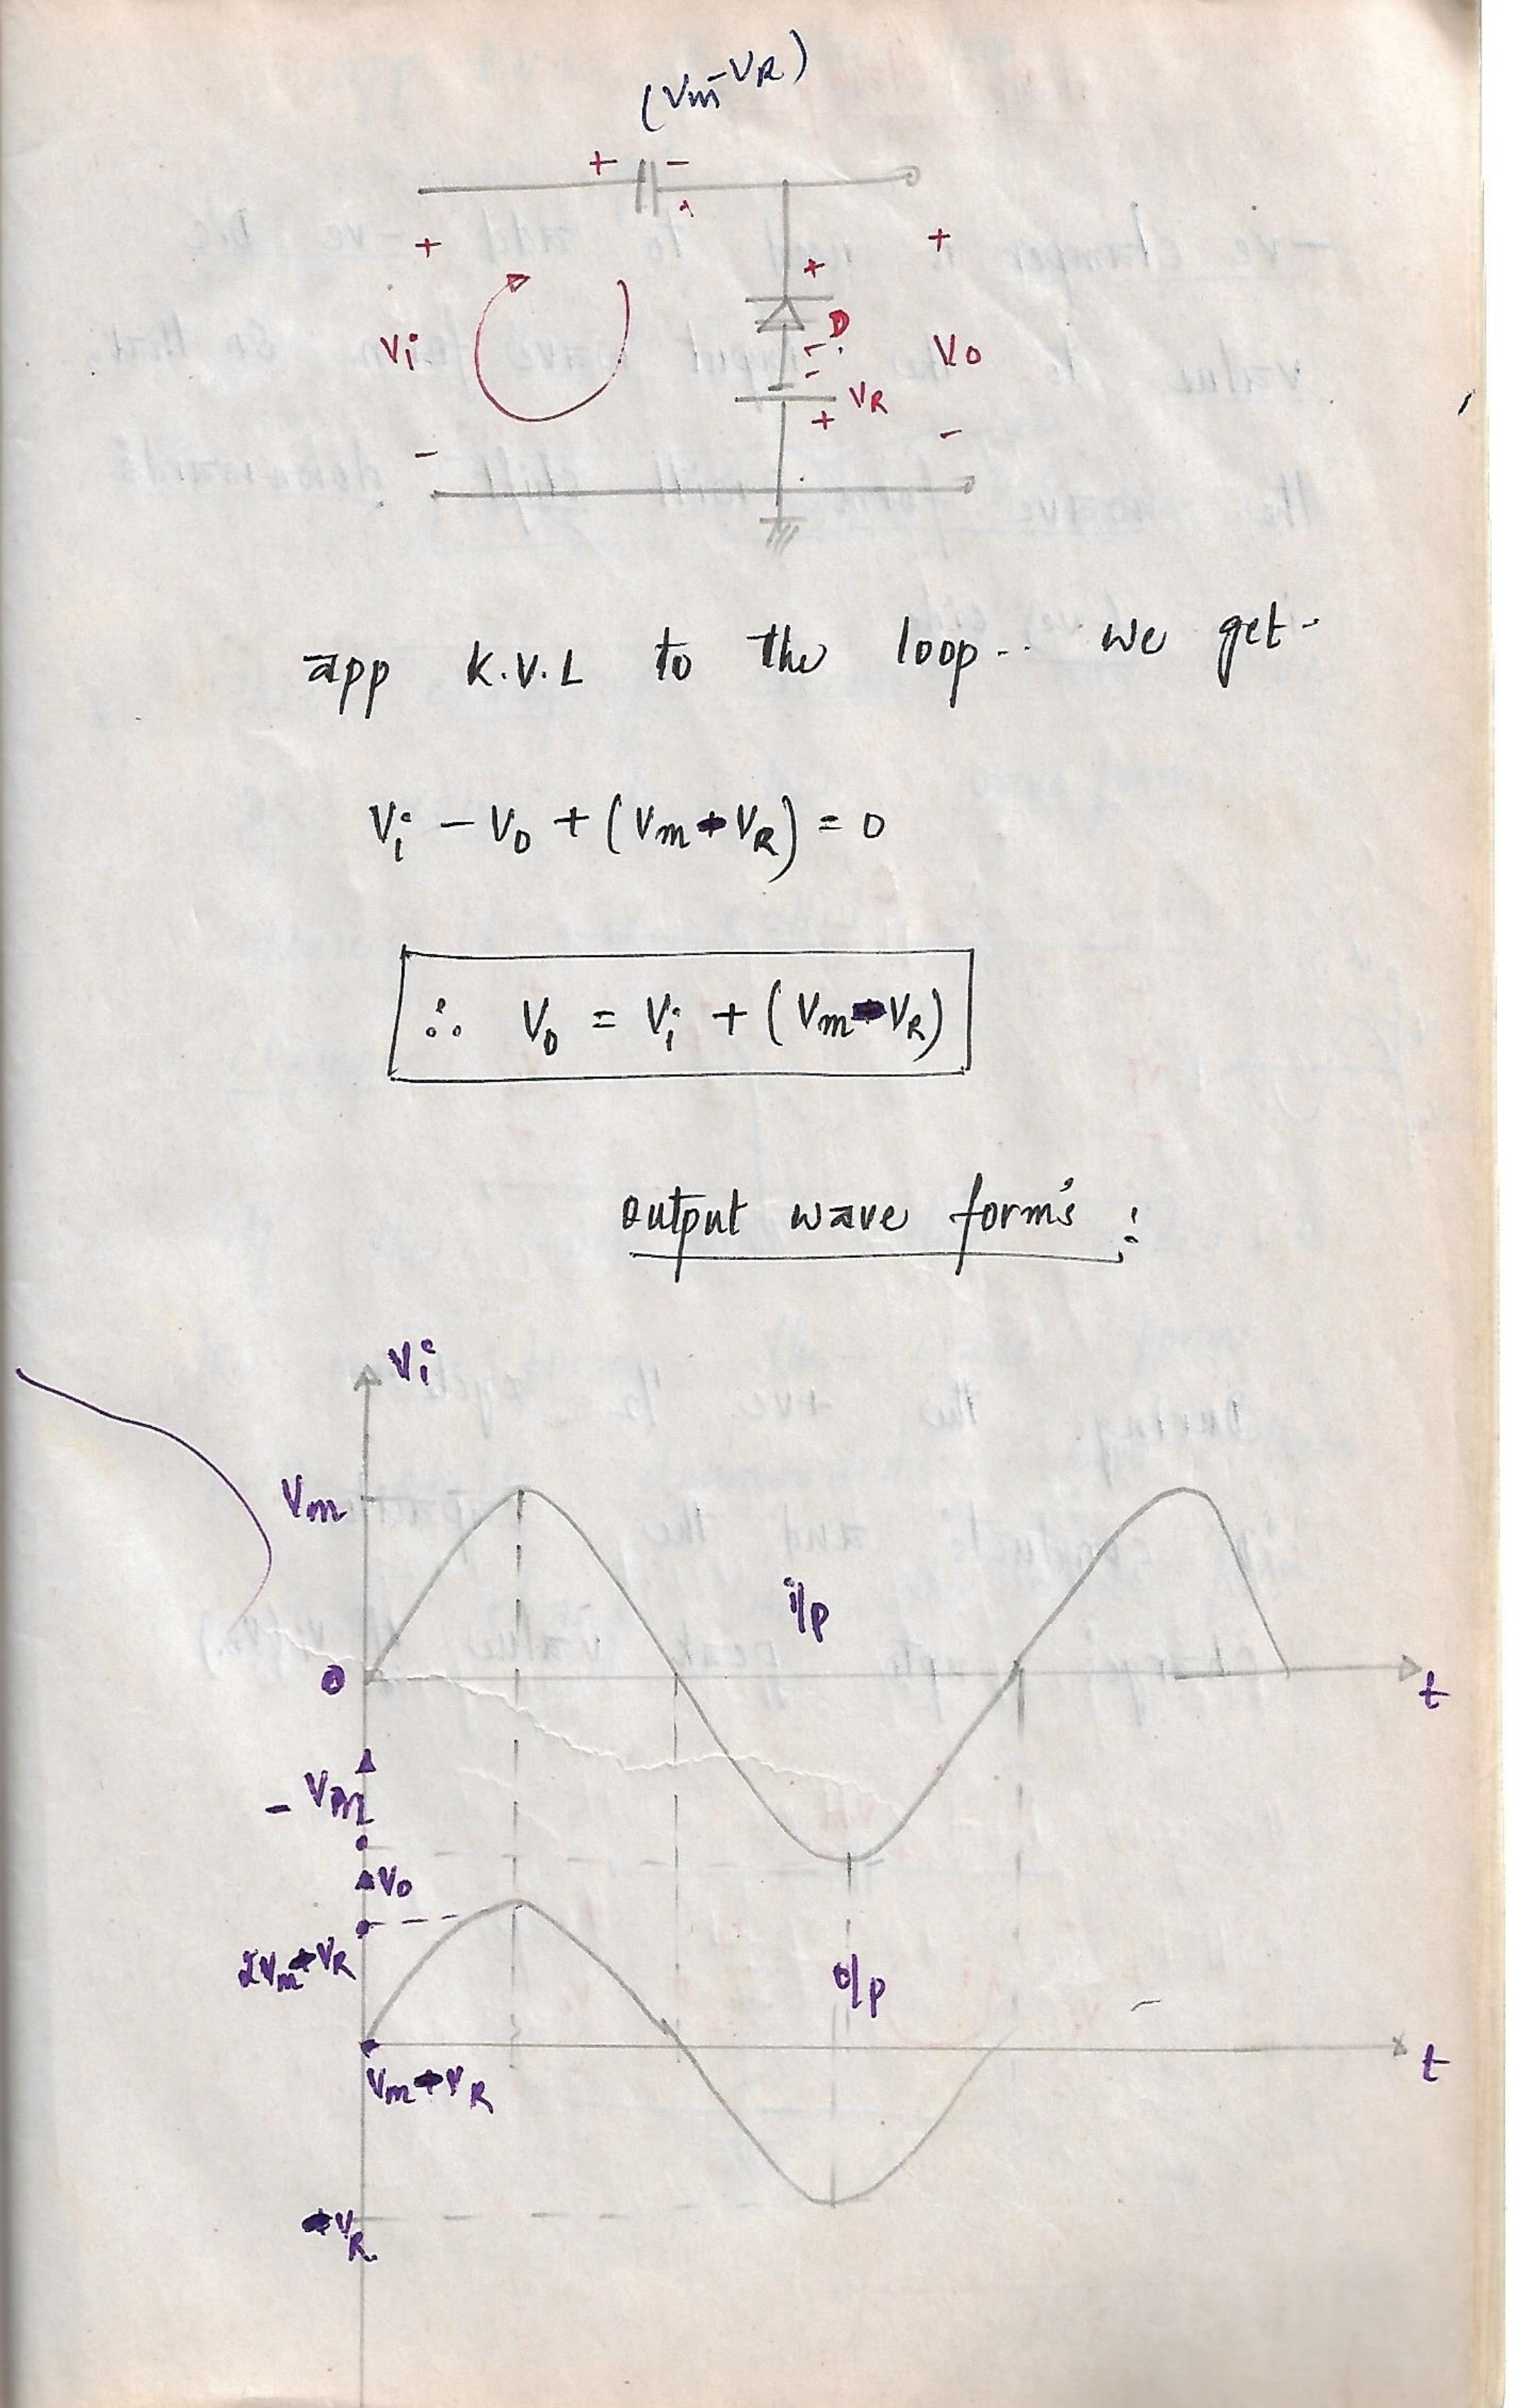 (Vm-VR)
+ -
+ + +
Vi D Vo
- -
VR
- + -
app K.V.L to the loop.. we get-
Vi - Vo + (Vm-VR) = 0
∴ Vo = Vi + (Vm-VR)
output wave form's :
Vi
Vm
i/p
0 t
- Vm
Vo
2Vm-VR
o/p
Vm-VR t
-VR